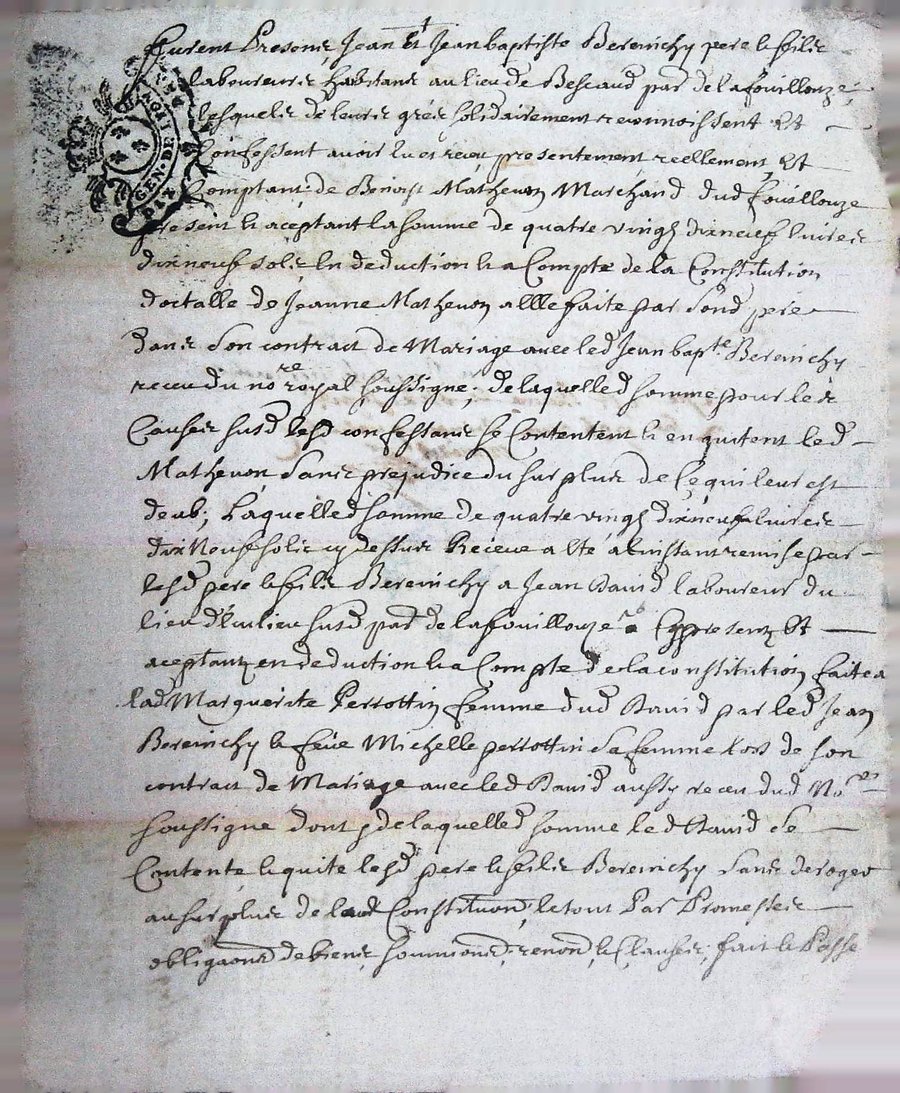 furent Presens Jean Et Jean baptiste Bereinchy pere & fils
laboureurs habitans au lieu de Bescaud par de lafouillouze
lesquels de leurs grés solidairement reconnoissent Et
Confessent avoir eu et receu presentement reellement Et
Comptant de Benoist Mathevon Marchand dud fouillouze
present & aceptant la somme de quatre vingt dixneuf livres
dixneuf sols En deduction & a Compte de la Constitution
doctalle de Jeanne Mathevon a Elle faite par Sond pere
dans Son contract de Mariage avec led Jean bapte Bereinchy
receu du nore royal soussigne; de laquelle d somme pour les
Causes susd lesd confessans se Contentent & en quitent led
Mathevon Sans prejudice du surplus de Ce qui leur est
deub; Laquelle d somme de quatre vingt dixneuf livres
dix Neuf sols cy dessus Receue a Esté a l'instant remise par
lesd pere & fils Bereinchy a Jean David laboureur du
lieu d'Eculieu susd par de lafouillouze Cy present Et
aceptant en deduction & a Compte de la constitution faite a
lad Marguerite Perrottin femme dud David par led Jean
Bereinchy & feue Michelle perrottin Sa femme Lors de son
contract de Mariage avec led David aussy receu dud Nore
soussigne dont & de laquelle d somme led David Se
Contente & quite lesd pere & fils Bereinchy Sans deroger
au surplus de lad Constitution, le tout Par Promesses
obligaons de biens, soumions, renons, & Clauses; fait & Passe
GEN DE
DIX